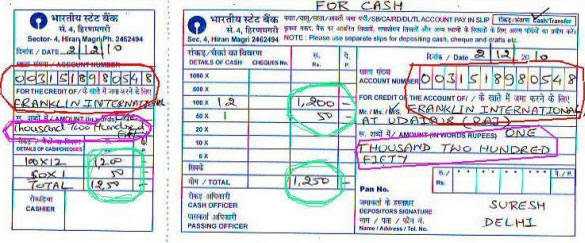 FOR CASH
भारतीय स्टेट बैंक
से. 4, हिरण मगरी
Sector- 4, Hiran Magri Ph.2462494
दिनांक / DATE 2 12 10
खाता संख्या / ACCOUNT NUMBER
003151898 0548
FOR THE CREDIT OF / के खाते में जमा करने के लिए
FRANKLIN INTERNATIONAL
रू. शब्दों में / AMOUNT (in words) One
Thousand Two Hundred
नकद / चैकों का विवरण
DETAILS OF CASH/CHEQUES
रू. Rs.
100X12 1200
50X1 50
TOTAL 1250 -
रोकड़िया
CASHIER
भारतीय स्टेट बैंक
से. 4, हिरण मगरी
Sec, 4, Hiran Magri 2462494
SB/CAR/D/DL/TL ACCOUNT PAY IN SLIP
रोकड़/अंतरण Cash/Transfer
NOTE : Please use separate slips for depositing cash, cheque and drafts etc.
रोकड़/चैकों का विवरण
DETAILS OF CASH CHEQUES No.
रू. Rs.
पै. P.
दिनांक / DATE 2 12 2010
1000 X
500 X
100 X 12 1,200 -
50 X 1 50 -
20 X
10 X
5 X
सिक्के
योग / TOTAL 1,250 -
खाता संख्या
ACCOUNT NUMBER 0031518980548
FOR CREDIT OF THE ACCOUNT OF / के खाते में जमा करने के लिए
Mr./Ms./M/s. FRANKLIN INTERNATIONAL
AT UDAIPUR (RAJ)
रू. शब्दों में / AMOUNT (IN WORDS RUPEES) ONE
THOUSAND TWO HUNDRED
FIFTY
रोकड़ अधिकारी
CASH OFFICER
पासकर्ता अधिकारी
PASSING OFFICER
Pan No.
रू./Rs.
पै./P.
जमाकर्ता के हस्ताक्षर
DEPOSITORS SIGNATURE
नाम / पता / फोन नं.
Name / Address / Tel. No.
SURESH
DELHI